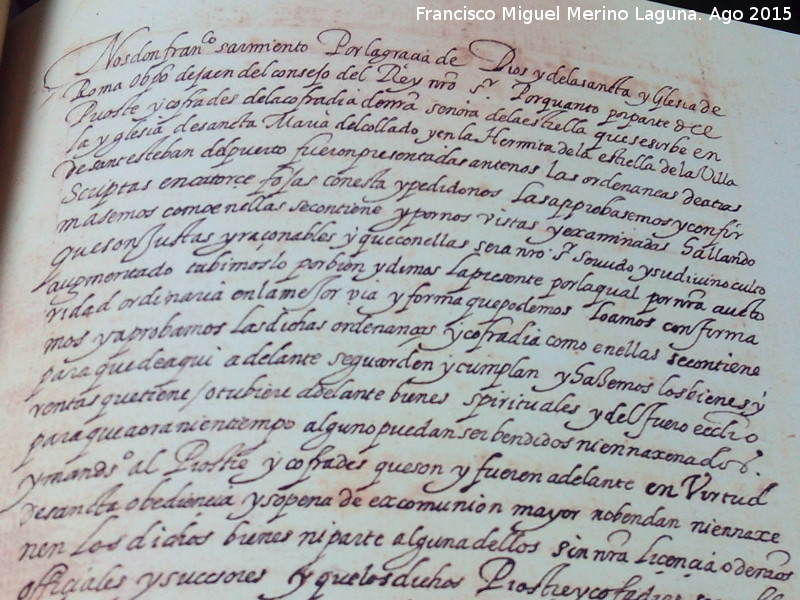 Francisco Miguel Merino Laguna. Ago 2015
Nos don fran^co sarmiento Por la gracia de Dios y de la sancta yglesia de
Roma obpo de jaen del consejo del Rey nro s^r Por quanto por parte de el
Prioste y cofrades de la cofradia de nra señora de la estrella que se sirbe en
la yglesia de sancta Maria del collado y en la Hermita de la estrella de la Villa
de sant esteban del puerto fueron presentadas ante nos las ordenancas de atras
Scriptas en catorce fojas con esta y pedidonos las approbasemos y confir
masemos como en ellas se contiene y por nos vistas y examinadas hallando
que son Justas y raçonables y que con ellas sera nro s^r seruido y su divino culto
augmentado tubimoslo por bien y dimos la presente por la qual por nra aucto
ridad ordinaria en la mejor via y forma que podemos loamos confirma
mos y aprobamos las dichas ordenanças y cofradia como en ellas se contiene
para que de aqui adelante se guarden y cumplan y hazemos los bienes y
rentas que tiene / o tubiere adelante bienes spirituales y del fuero ecclco
para que aora ni en tiempo alguno puedan ser bendidos ni ennaxenados
y mandº al Prioste y cofrades que son y fueren adelante en Virtud
de sancta obediencia y so pena de excomunion mayor no bendan ni ennaxe
nen los dichos bienes ni parte alguna dellos sin nra licencia o de nros
officiales y succsores y que los dichos Prioste y cofrades